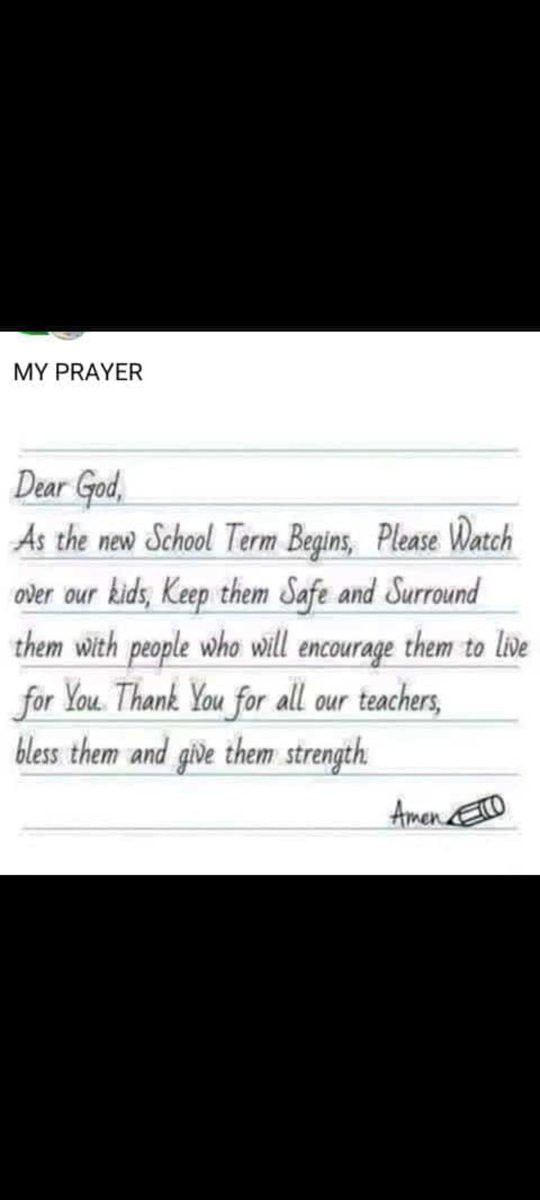 MY PRAYER
Dear God,
As the new School Term Begins, Please Watch
over our kids, Keep them Safe and Surround
them with people who will encourage them to live
for You. Thank You for all our teachers,
bless them and give them strength.
Amen